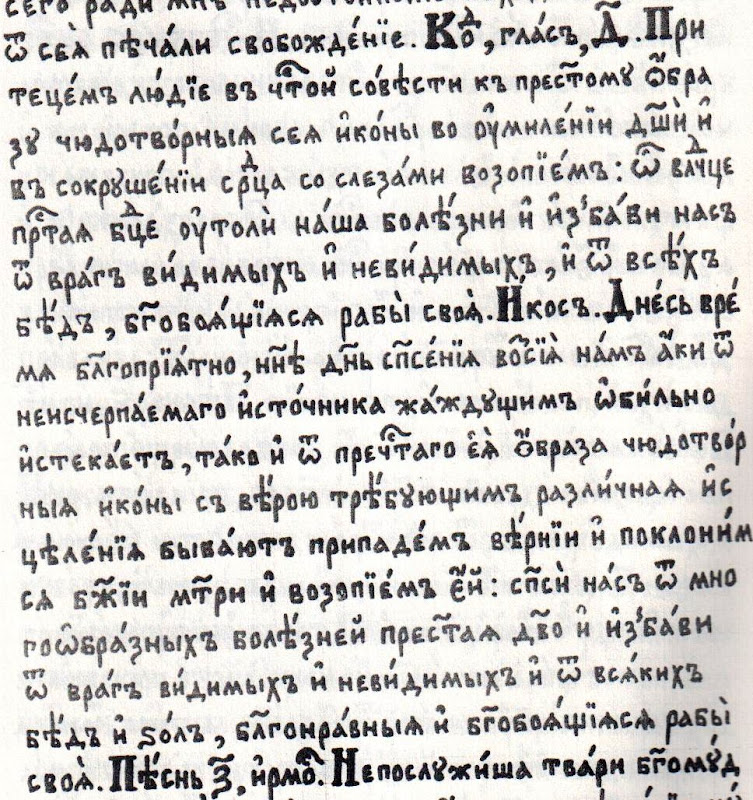 сего ради мнѣ недостойному
ѿ сеѧ̀ пѣча́ли свобожде́нїе. Коⷣ, гла́съ, д҃. При
теце́мъ лю́дїе въ чтⷭ҇ой со́вѣсти къ престⷭ҇ому ѻ҆́бра
зу чюдотво́рныѧ сеѧ̀ и҆ко́ны во ѹ҆миле́нїи дш҃и и҆
въ сокруше́нїи срⷣца со слеза́ми возопїе́мъ: ѽ влⷣчце
прⷭ҇таѧ бцⷣе ѹ҆толѝ на́ша болѣ́зни и҆ и҆зба́ви насъ
ѿ вра́гъ ви́димыхъ и҆ неви́димыхъ, и҆ ѿ всѣ́хъ
бѣ́дъ, бг҃обоѧ́щїѧсѧ рабы̀ своѧ̀. И҆́косъ. Дне́сь вре́
мѧ бл҃гопрїѧ́тно, нн҃ѣ дн҃ь сп҃се́нїѧ восⷭ҇їѧ̀ на́мъ а҆́ки ѿ
неисчерпа́емаго и҆сто́чника жа́ждущимъ ѡ҆би́льно
и҆стека́етъ, та́ко и҆ ѿ пречⷭ҇таго еѧ̀ ѻ҆́браза чюдотво́р
ныѧ и҆ко́ны съ вѣ́рою тре́бующимъ разли́чнаѧ и҆с
цѣле́нїѧ быва́ютъ припаде́мъ вѣ́рнїи и҆ поклони́м
сѧ бж҃їи мт҃ри и҆ возопїе́мъ е҆́й: сп҃сѝ на́съ ѿ мно
гоѡбра́зныхъ болѣ́зней престⷭ҇аѧ дв҃о и҆ и҆зба́ви
ѿ вра́гъ ви́димыхъ и҆ неви́димыхъ и҆ ѿ всѧ́кихъ
бѣ́дъ и҆ ѕо́лъ, бл҃гонра́вныѧ и҆ бг҃обоѧ́щїѧсѧ рабы̀
своѧ̀. Пѣ́снь з҃, и҆рмоⷭ҇. Непослужи́ша тва́ри бг҃ому́д